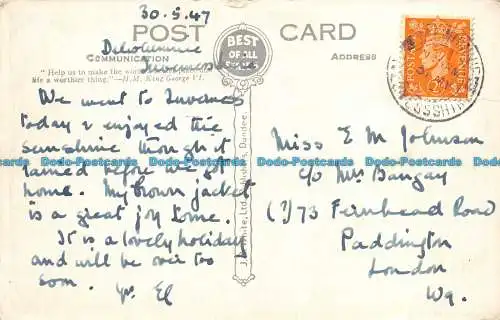 30.5.47
POST CARD
BEST OF ALL
COMMUNICATION
ADDRESS
Inverness
"Help us to make the world
life a worthier thing."—H.M. King George VI.
We went to Inverness
today & enjoyed the
sunshine though it
rained before we got
home. My brown jacket
is a great joy to me.
It is a lovely holiday
and will be over too
soon. Yrs. El
J. B. White, Ltd., Dundee.
POSTAGE REVENUE
Miss E M Johnson
c/o Mrs Bangay
(?)73 Fernhead Road
Paddington
London
W9.
Dodo-Postcards.com